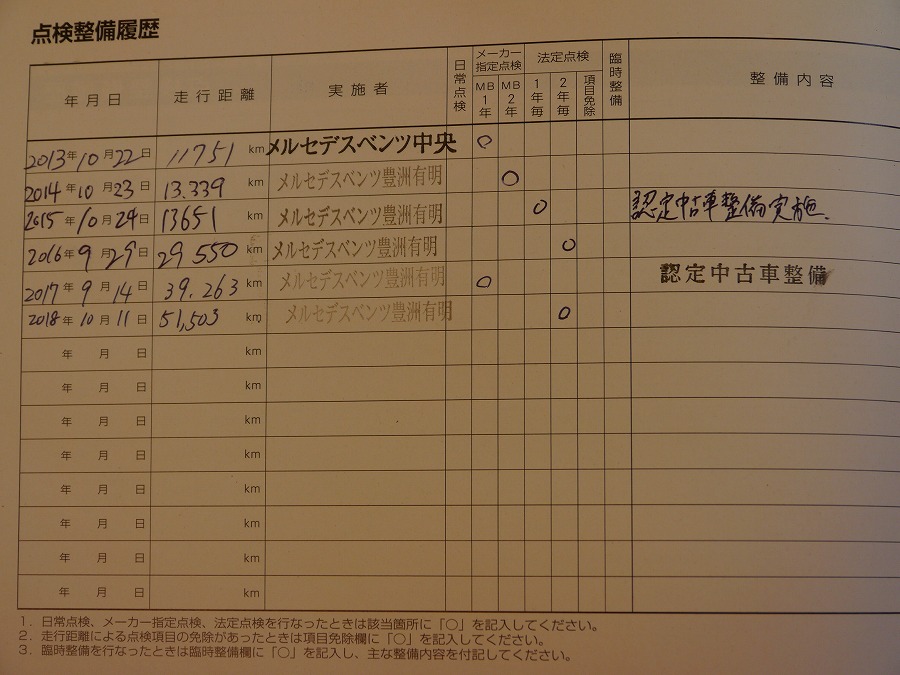 点検整備履歴
年月日 走行距離 実施者 日常点検 メーカー指定点検 MB1年 MB2年 法定点検 1年毎 2年毎 項目免除 臨時整備 整備内容
2013年10月22日 11751km メルセデスベンツ中央 ○
2014年10月23日 13.339km メルセデスベンツ豊洲有明 ○
2015年10月24日 13651km メルセデスベンツ豊洲有明 ○ 認定中古車整備実施.
2016年9月29日 29550km メルセデスベンツ豊洲有明 ○
2017年9月14日 39.263km メルセデスベンツ豊洲有明 ○ 認定中古車整備
2018年10月11日 51,503km メルセデスベンツ豊洲有明 ○
年 月 日 km
年 月 日 km
年 月 日 km
年 月 日 km
年 月 日 km
年 月 日 km
年 月 日 km
年 月 日 km
1. 日常点検、メーカー指定点検、法定点検を行なったときは該当箇所に「○」を記入してください。
2. 走行距離による点検項目の免除があったときは項目免除欄に「○」を記入してください。
3. 臨時整備を行なったときは臨時整備欄に「○」を記入し、主な整備内容を付記してください。